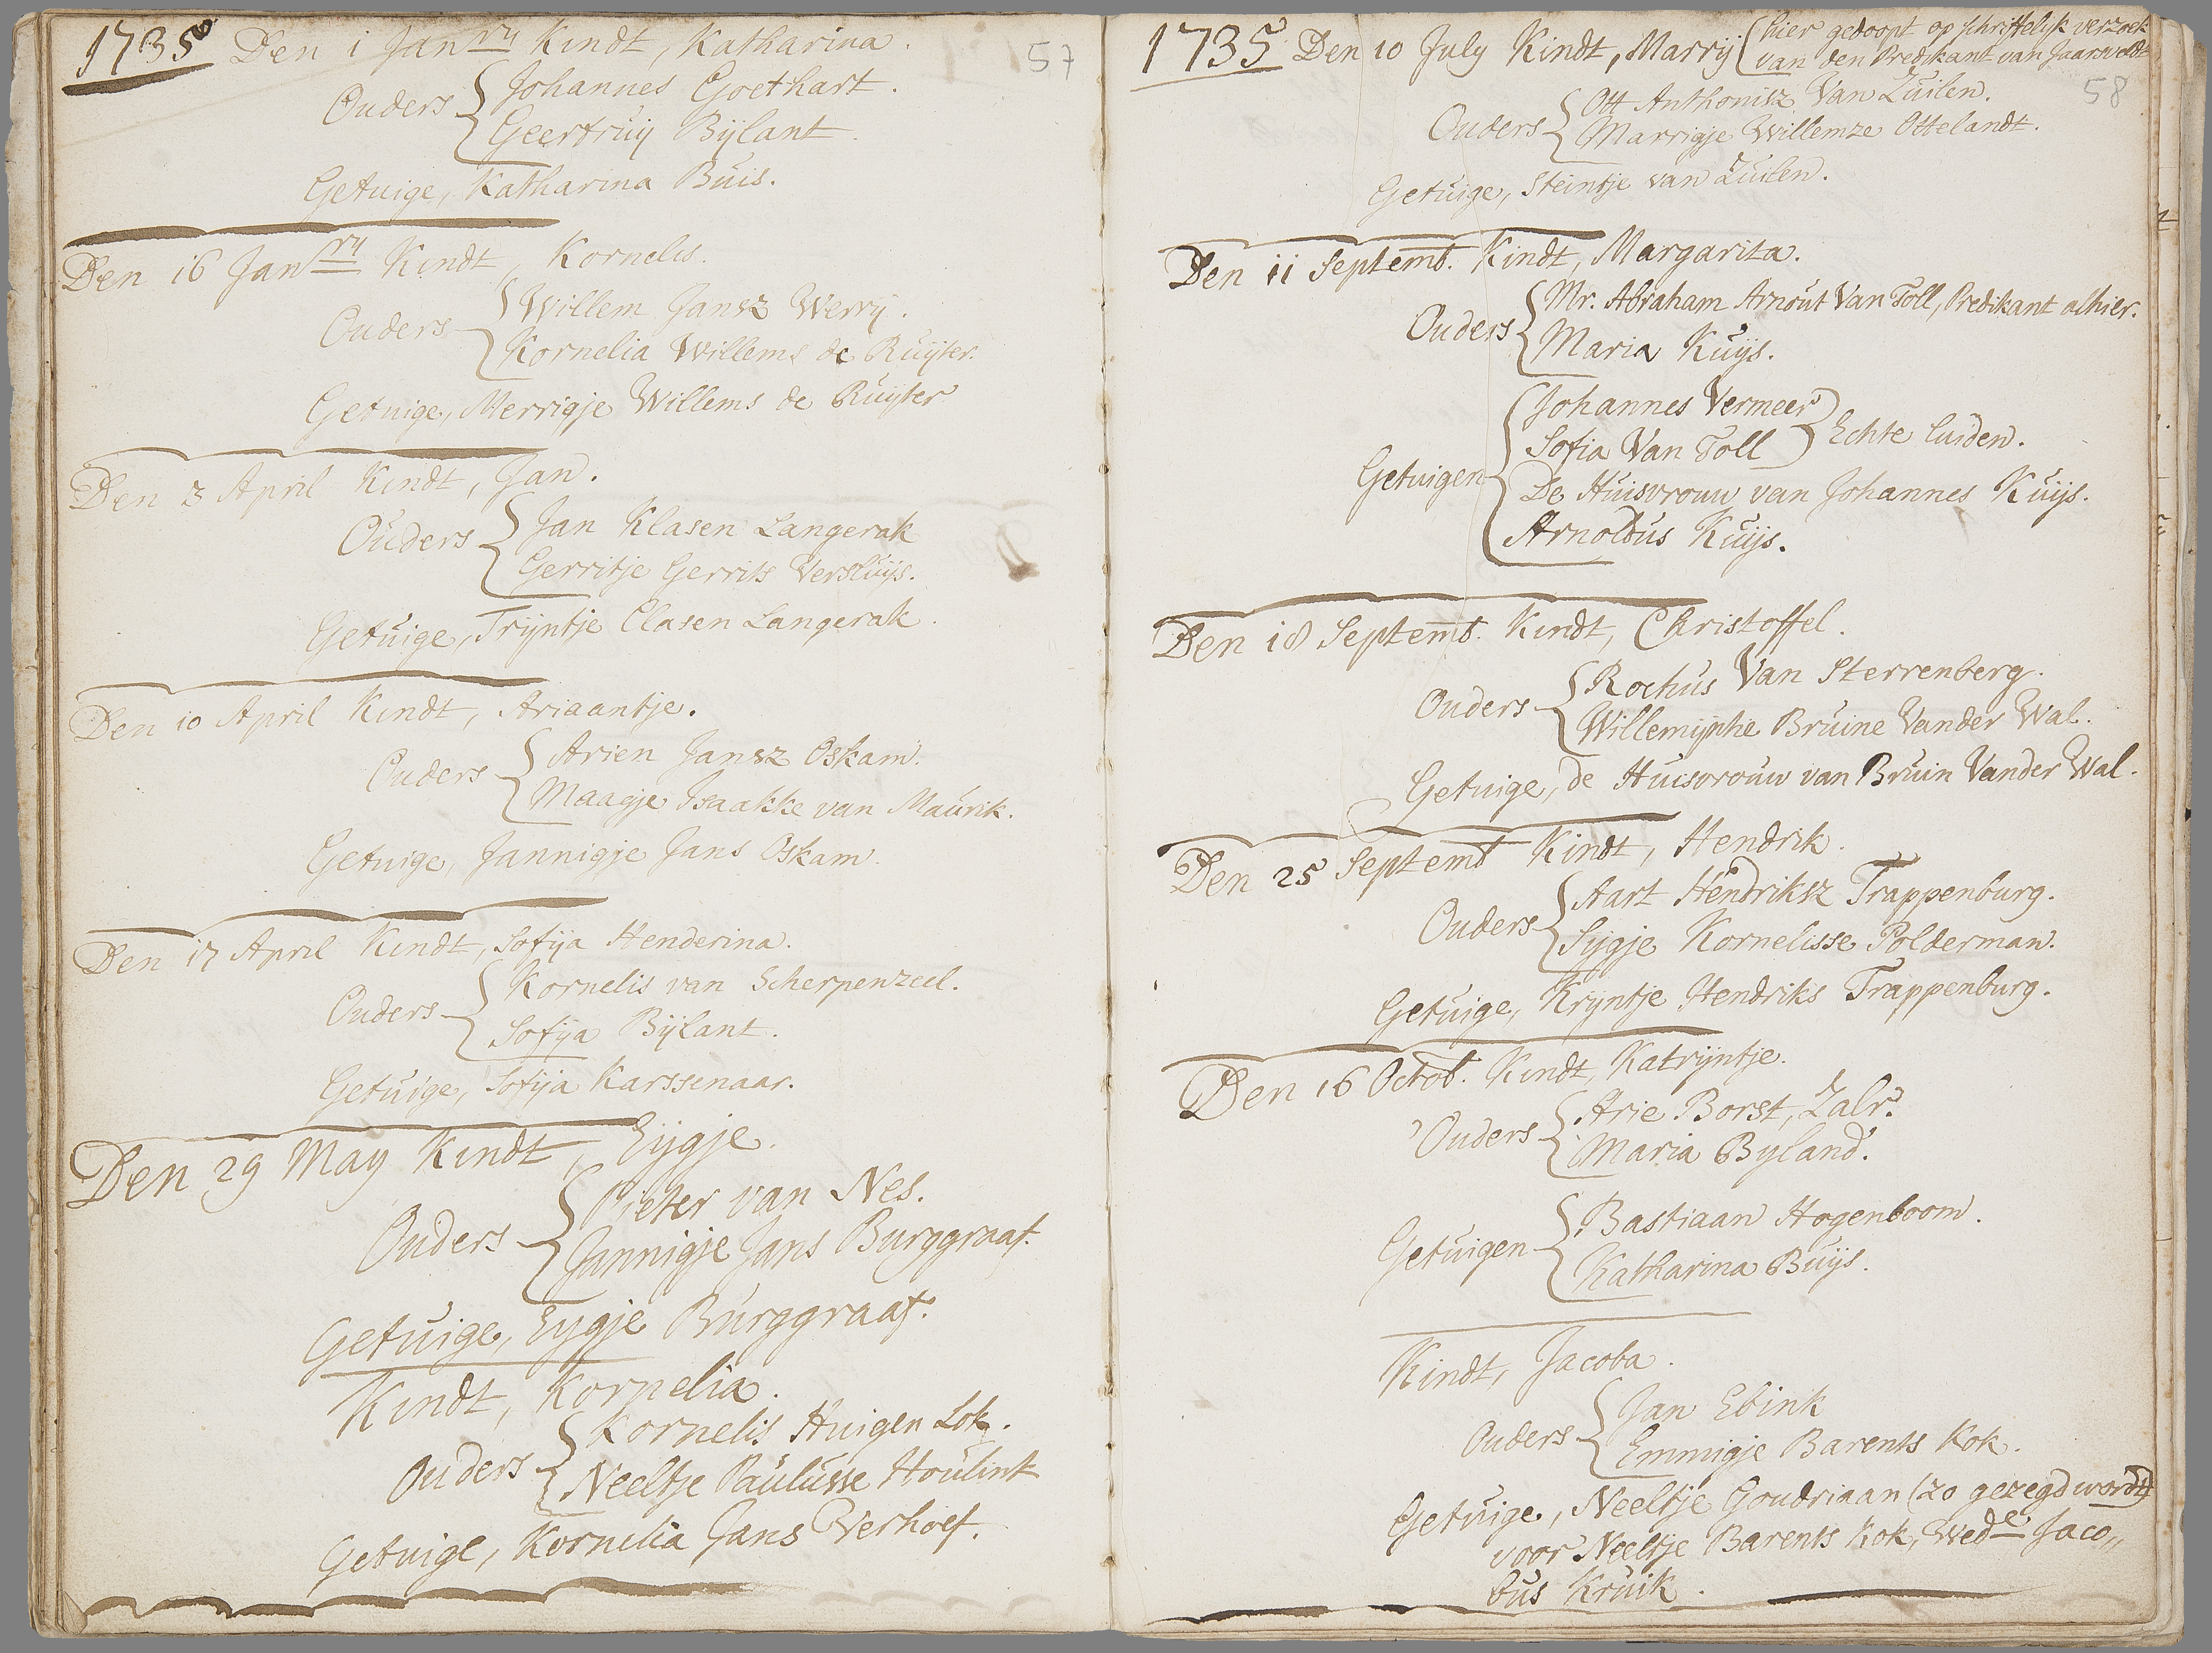 1735 Den 1 Janry Kindt, Katharina.
57
Ouders
Johannes Goethart.
Geertruij Bijlant.
Getuige, Katharina Buis.
Den 16 Janry Kindt, Kornelis.
Ouders
Willem Jansz Werrij.
Kornelia Willems de Ruijter.
Getuige, Merrigje Willems de Ruijter
Den 3 April Kindt, Jan.
Ouders
Jan Klasen Langerak
Gerritje Gerrits Versluijs.
Getuige, Trijntje Clasen Langerak.
Den 10 April Kindt, Ariaantje.
Ouders
Arien Jansz Oskam.
Maagje Isaakke van Maurik.
Getuige, Jannigje Jans Oskam.
Den 17 April Kindt, Sofija Henderina.
Ouders
Kornelis van Scherpenzeel.
Sofija Bijlant.
Getuige, Sofija Karssenaar.
Den 29 May Kindt, Eijgje.
Ouders
Pieter van Nes.
Jannigje Jans Burggraaf.
Getuige, Eygje Burggraaf.
Kindt, Kornelia.
Ouders
Kornelis Huigen Lok.
Neeltje Paulusse Houlink
Getuige, Kornelia Jans Verhoef.
1735 Den 10 July Kindt, Marrij (hier gedoopt op schriftelijk verzoek
van den Predikant van Jaarsveldt
58
Ouders
Ott Anthonisz Van Zuilen.
Marrigje Willemze Ottelandt.
Getuige, Steintje van Zuilen.
Den 11 Septemb. Kindt, Margarita.
Ouders
Mr. Abraham Arnout Van Toll, Predikant alhier.
Maria Kuijs.
Getuigen
Johannes Vermeer
Sofia Van Toll
Echte luiden.
De Huisvrouw van Johannes Kuijs.
Arnoldus Kuijs.
Den 18 Septemb. Kindt, Christoffel.
Ouders
Rochus Van Sterrenberg.
Willemijnhe Bruine Vander Wal.
Getuige, de Huisvrouw van Bruin Vander Wal.
Den 25 Septemb Kindt, Hendrik.
Ouders
Aart Hendriksz Trappenburg.
Sijgje Kornelisse Polderman.
Getuige, Krijntje Hendriks Trappenburg.
Den 16 Octob. Kindt, Katrijntje.
Ouders
Arie Borst, Zalr.
Maria Byland.
Getuigen
Bastiaan Hogenboom.
Katharina Buijs.
Kindt, Jacoba.
Ouders
Jan Ebink
Emmigje Barents Kok.
Getuige, Neeltje Goudriaan (zo gezegd wordt)
voor Neeltje Barents Kok, Wede Jaco„
bus Kruik.